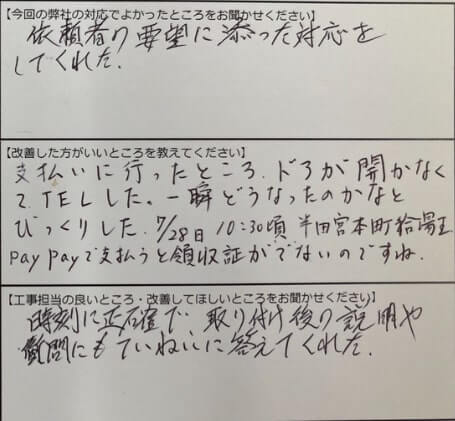 【今回の弊社の対応でよかったところをお聞かせください】
依頼者の要望に添った対応を
してくれた.
【改善した方がいいところを教えてください】
支払いに行ったところ、ドアが開かなく
て、TELした。一瞬どうなったのかなと
びっくりした. 7/28日 10:30頃 半田宮本町給湯王
paypayで支払うと領収証がでないのですね.
【工事担当の良いところ・改善してほしいところをお聞かせください】
時刻に正確で、取り付け後の説明や
質問にもていねいに答えてくれた.